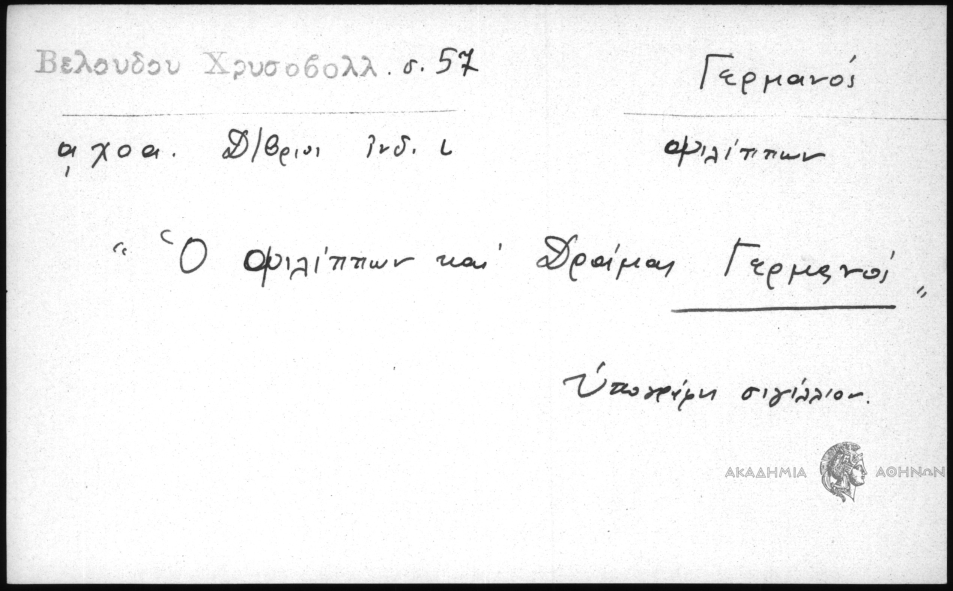 Βελούδου Χρυσοβολλ. σ. 57
Γερμανός
͵αχοα. Δ/βριοι ἰνδ. ι
Φιλίππων
“Ὁ Φιλίππων καὶ Δράμας Γερμανός„
Ὑπογράφει σιγίλλιον.
ΑΚΑΔΗΜΙΑ ΑΘΗΝΩΝ